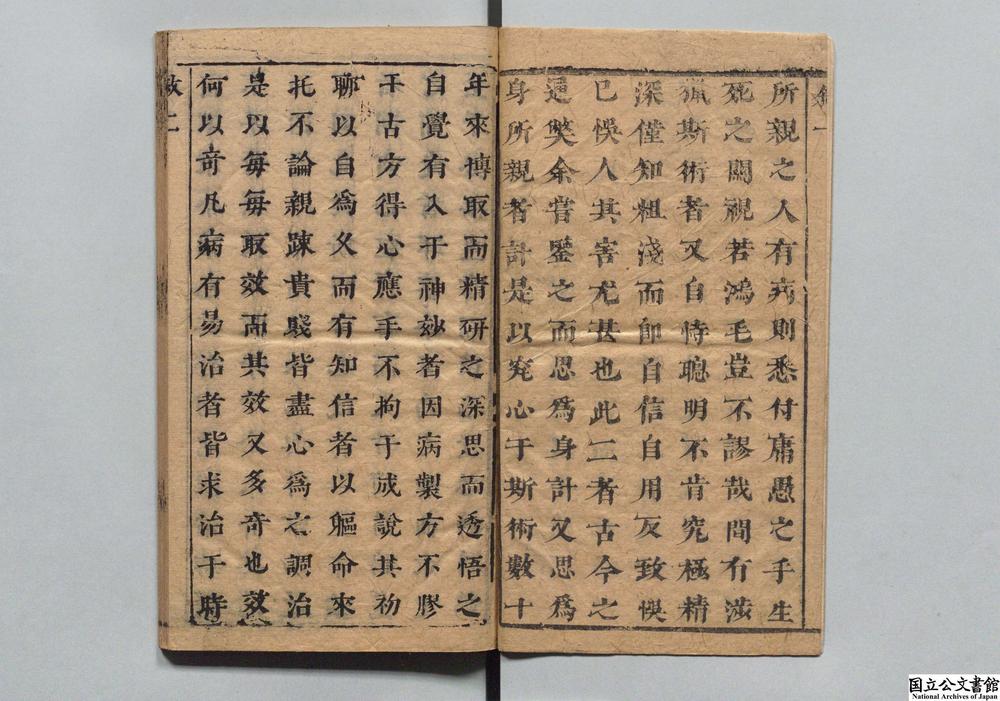 所親之人有病則悉付庸愚之手生
死之關視若鴻毛豈不謬哉間有涉
獵斯術者又自恃聰明不肯究極精
深僅知粗淺而卽自信自用反致悞
已悞人其害尤甚也此二者古今之
通獘余嘗鑒之而思爲身計又思爲
身所親者計是以究心于斯術數十
年來博取而精研之深思而透悟之
自覺有入于神妙者因病製方不膠
于古方得心應手不拘于成說其初
聊以自爲久而有知信者以軀命來
托不論親踈貴賤皆盡心爲之調治
是以每每取效而其效又多奇也效
何以奇凡病有易治者皆求治于時
二
国立公文書館
National Archives of Japan